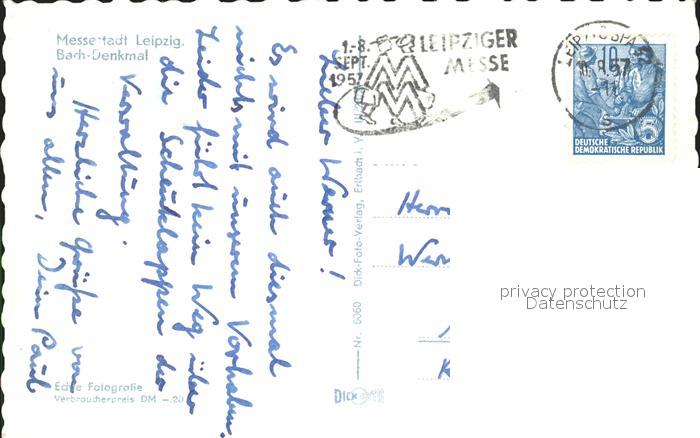 Messestadt Leipzig.
Bach-Denkmal
1.-8.
SEPT.
1957
LEIPZIGER
MESSE
MM
LEIPZIG
.57
10
5
DEUTSCHE
DEMOKRATISCHE REPUBLIK
Lieber Werner!
Es wird auch diesmal
nichts mit unserem Vorhaben.
Leider führt kein Weg über
die Scheuklappen der
Verwaltung.
Herzliche Grüße von
uns allen, Dein Paul
Nr. 6060 Dick-Foto-Verlag, Erlbach i. V.
Herrn
Wern
privacy protection
Datenschutz
Echte Fotografie
Verbraucherpreis DM –.20
DICK